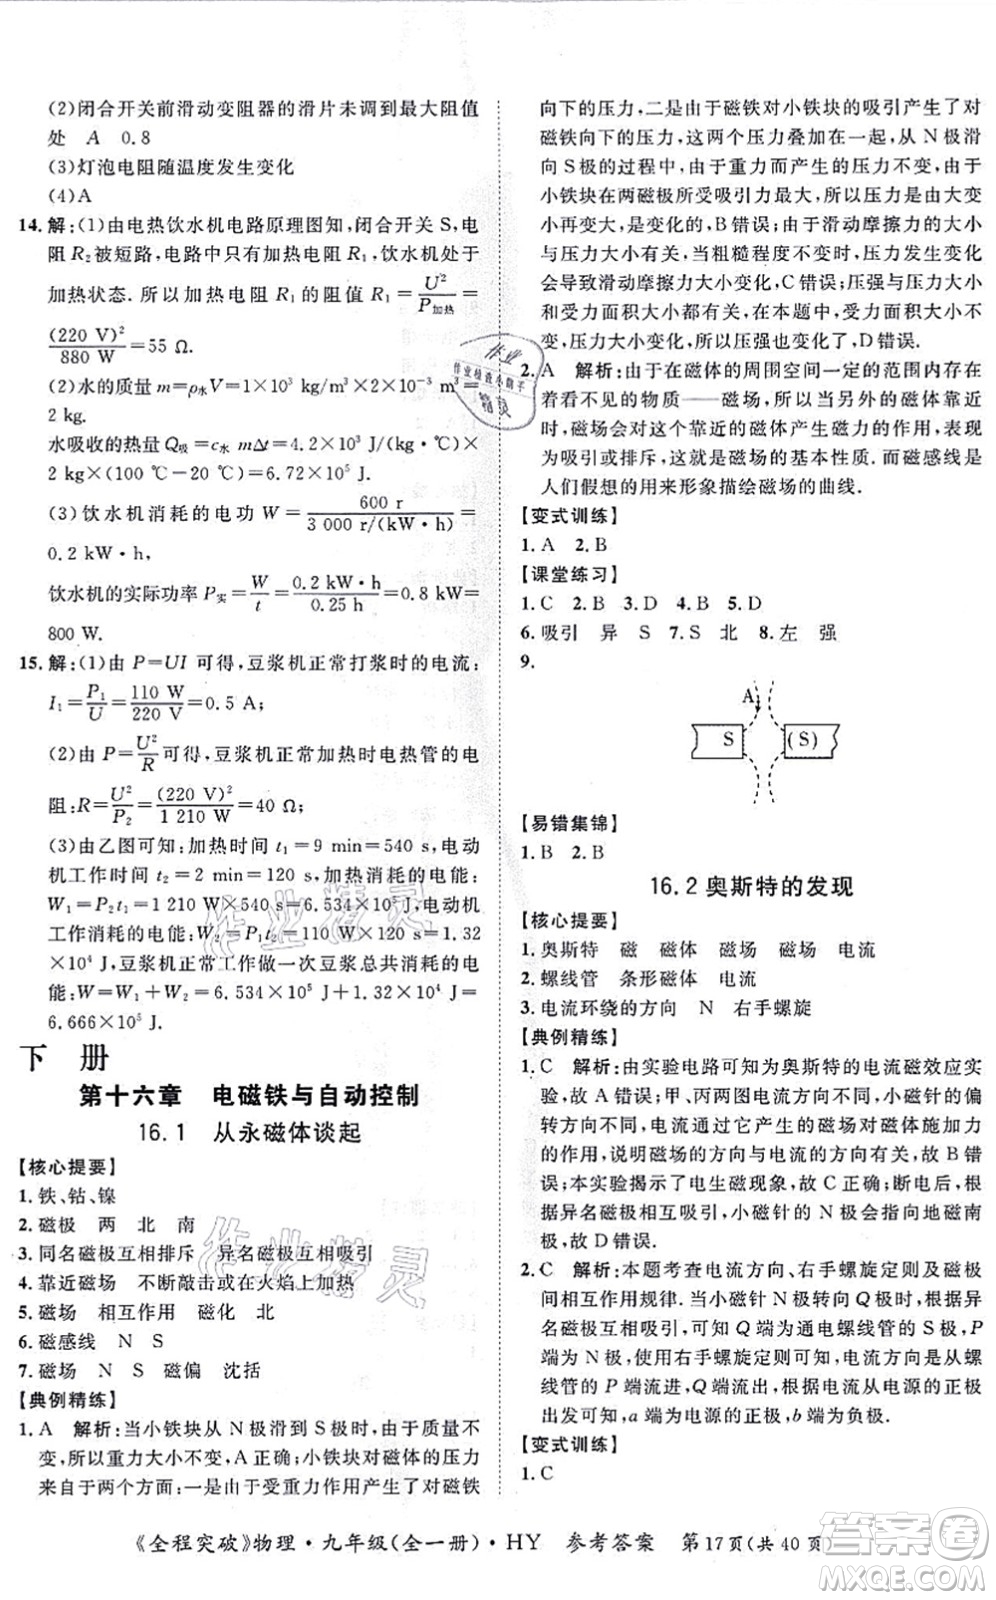 (2)闭合开关前滑动变阻器的滑片未调到最大阻值
处　A　0.8
(3)灯泡电阻随温度发生变化
(4)A
14.解:(1)由电热饮水机电路原理图知,闭合开关 S,电
阻 R₂被短路,电路中只有加热电阻 R₁,饮水机处于
加热状态.所以加热电阻 R₁ 的阻值 R₁=U²/P加热=
(220 V)²/880 W=55 Ω.
(2)水的质量 m=ρ水V=1×10³ kg/m³×2×10⁻³ m³=
2 kg.
水吸收的热量 Q吸=c水 mΔt=4.2×10³ J/(kg·℃)×
2 kg×(100 ℃-20 ℃)=6.72×10⁵ J.
(3)饮水机消耗的电功 W=600 r/3 000 r/(kW·h)=
0.2 kW·h
饮水机的实际功率 P实=W/t=0.2 kW·h/0.25 h=0.8 kW=
800 W.
15.解:(1)由 P=UI 可得,豆浆机正常打浆时的电流:
I₁=P₁/U=110 W/220 V=0.5 A;
(2)由 P=U²/R可得,豆浆机正常加热时电热管的电
阻:R=U²/P₂=(220 V)²/1 210 W=40 Ω;
(3)由乙图可知:加热时间 t₁=9 min=540 s,电动
机工作时间 t₂=2 min=120 s,加热消耗的电能:
W₁=P₁t₁=1 210 W×540 s=6.534×10⁵ J,电动机
工作消耗的电能:W₂=P₂t₂=110 W×120 s=1.32
×10⁴ J,豆浆机正常工作做一次豆浆总共消耗的电
能:W=W₁+W₂=6.534×10⁵ J+1.32×10⁴ J=
6.666×10⁵ J.
下　册
第十六章　电磁铁与自动控制
16.1　从永磁体谈起
【核心提要】
1.铁、钴、镍
2.磁极　两　北　南
3.同名磁极互相排斥　异名磁极互相吸引
4.靠近磁场　不断敲击或在火焰上加热
5.磁场　相互作用　磁化　北
6.磁感线　N　S
7.磁场　N　S　磁偏　沈括
【典例精练】
1.A　解析:当小铁块从 N 极滑到 S 极时,由于质量不
变,所以重力大小不变,A 正确;小铁块对磁体的压力
来自于两个方面:一是受重力作用产生了对磁铁
向下的压力,二是由于磁铁对小铁块的吸引产生了对
磁铁向下的压力,两个压力叠加在一起,从 N 极滑
向 S 极的过程中,由于重力而产生的压力不变,由于
小铁块在两磁极所受吸引力最大,所以压力由大变
小再变大,B 错误;由于滑动摩擦力的大小与压力大
小有关,在粗糙程度不变时,压力大小发生变化,就
会导致滑动摩擦力大小变化,C 错误;压强与压力大
小和受力面积大小都有关,在本题中,受力面积不
变,但压力大小变化了,所以压强也变化了,D 错误.
2.A　解析:由于在磁体的周围空间一定的范围内存
在着看不见的物质——磁场,当有别的磁体靠近
时,磁场会对这个靠近的磁体产生磁力的作用,表现
为吸引或排斥,这是磁场的基本性质.而磁感线是
人们假想的用来形象描绘磁场的曲线.
【变式训练】
1.A　2.B
【课堂练习】
1.C　2.B　3.D　4.B　5.D
6.吸引　异　S　7.S　北　8.左　强
9.
A
S　(S)
【易错集锦】
1.B　2.B
16.2 奥斯特的发现
【核心提要】
1.奥斯特　磁　磁体　磁场　磁场　电流
2.螺线管　条形磁体　电流
3.电流环绕的方向　N　右手螺旋
【典例精练】
1.C　解析:由实验电路可知为奥斯特的电流磁效应实
验.所以 A 错误;甲、丙两图电流方向不同,小磁针的偏
转方向不同,而小磁针的偏转是由磁场对磁体施加力的
作用,说明磁场的方向与电流的方向有关,故 B 错误;
因为本实验是电生磁现象,故 C 正确;断电后,根据异
名磁极相互吸引,小磁针会受地磁场影响指向地磁南
极,故 D 错误.
2.C　解析:本题考查电流方向、右手螺旋定则及磁极间
相互作用规律.从图中小磁针 N 极转向及磁极间作用
异名磁极相互吸引,可知 Q 端为通电螺线管的 S 极,P
端为 N 极.由右手螺旋定则可知,电流应从通电螺
线管的 P 端流进,从 Q 端流出,电流从电源的正极
出发可知,a 端为电源的正极,b 端为负极.
【变式训练】
1.C
《全程突破》物理·九年级(全一册)·HY　参考答案　第17页(共40页)
作业
作业检查小助手
精灵
作业精灵
作业精灵
答案圈
MXQE.COM